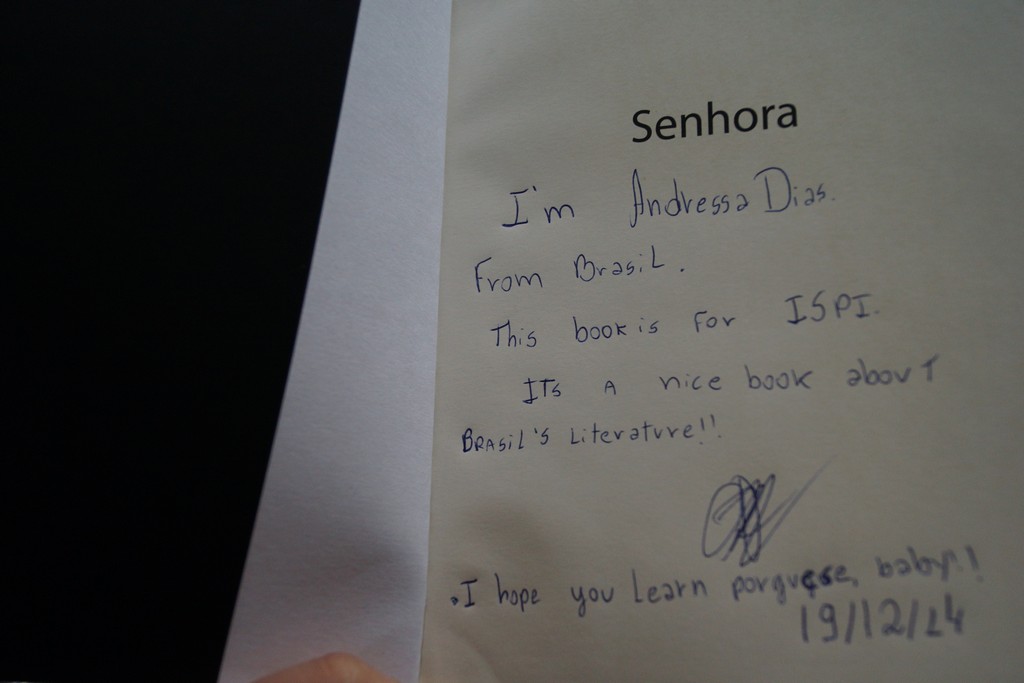 Senhora
I'm Andressa Dias.
From Brasil.
This book is For ISPI.
ITs A nice book about
BRASIL'S Literature!!
.I hope you Learn porguese, baby!!
19/12/14